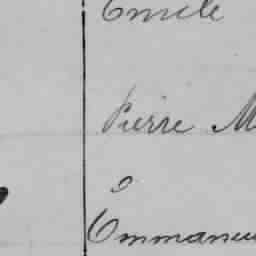 Emile
Pierre M
Emmanu